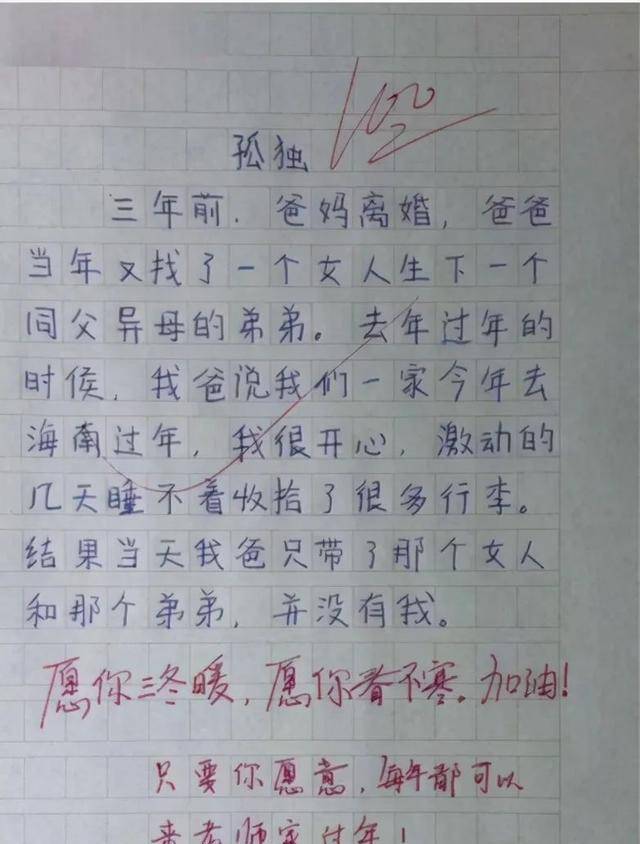 100
孤独
三年前，爸妈离婚，爸爸
当年又找了一个女人生下一个
同父异母的弟弟。去年过年的
时候，我爸说我们一家今年去
海南过年，我很开心，激动的
几天睡不着收拾了很多行李。
结果当天我爸只带了那个女人
和那个弟弟，并没有我。
愿你三冬暖，愿你春不寒。加油！
只要你愿意，每年都可以
来老师家过年！